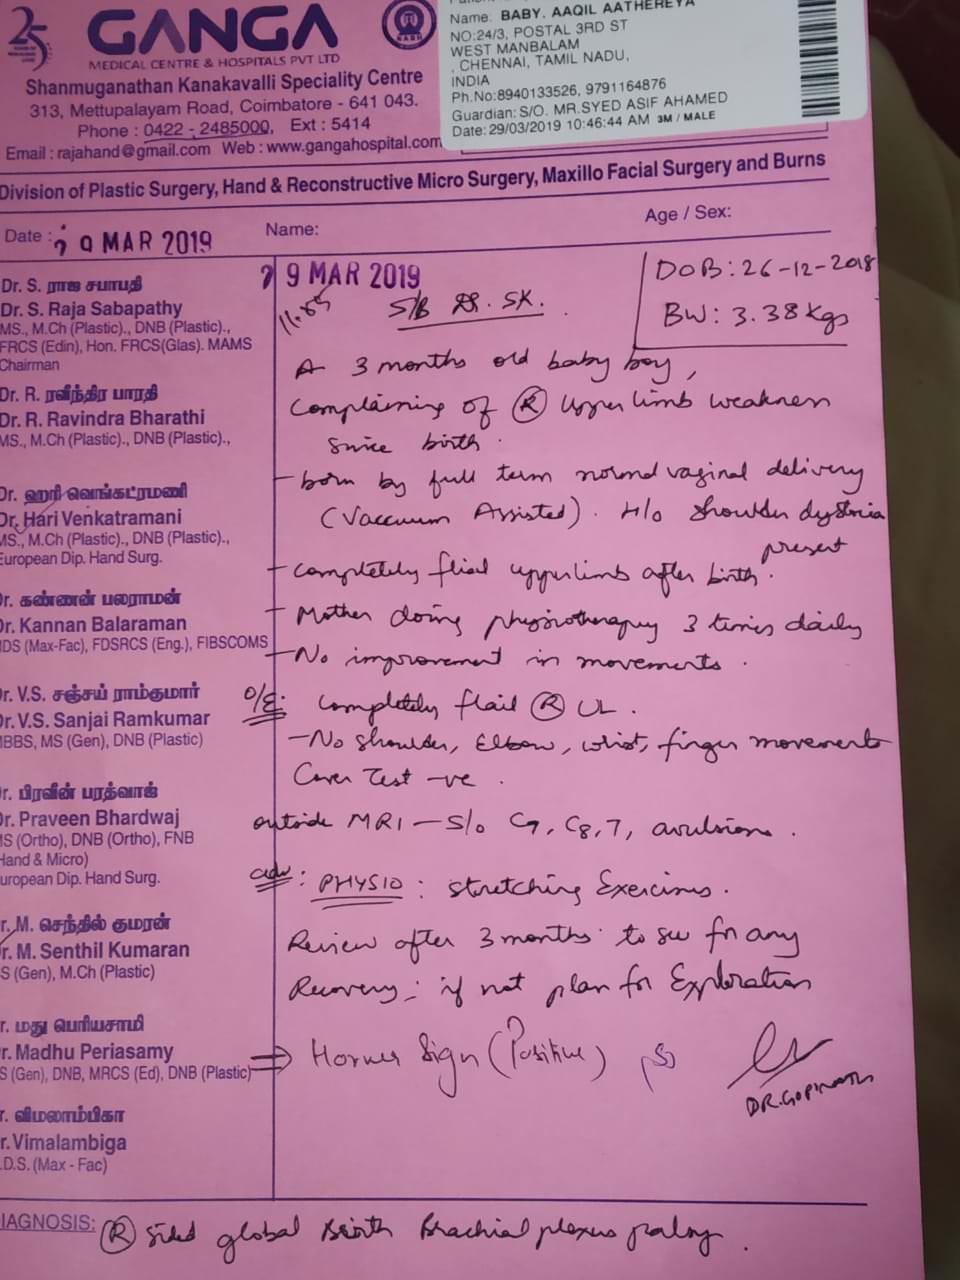 25
GANGA
MEDICAL CENTRE & HOSPITALS PVT LTD
Shanmuganathan Kanakavalli Speciality Centre
313, Mettupalayam Road, Coimbatore - 641 043.
Phone : 0422 - 2485000, Ext : 5414
Email : rajahand@gmail.com Web : www.gangahospital.com
Name: BABY. AAQIL AATHEREYA
NO:24/3, POSTAL 3RD ST
WEST MANBALAM
, CHENNAI, TAMIL NADU,
INDIA
Ph.No:8940133526, 9791164876
Guardian: S/O. MR.SYED ASIF AHAMED
Date: 29/03/2019 10:46:44 AM 3M / MALE
Division of Plastic Surgery, Hand & Reconstructive Micro Surgery, Maxillo Facial Surgery and Burns
Date : 29 MAR 2019
Name:
Age / Sex:
Dr. S. ராஜ சபாபதி
Dr. S. Raja Sabapathy
MS., M.Ch (Plastic)., DNB (Plastic).,
FRCS (Edin), Hon. FRCS(Glas). MAMS
Chairman
Dr. R. ரவீந்திர பாரதி
Dr. R. Ravindra Bharathi
MS., M.Ch (Plastic)., DNB (Plastic).,
Dr. ஹரி வெங்கட்ரமணி
Dr. Hari Venkatramani
MS., M.Ch (Plastic)., DNB (Plastic).,
European Dip. Hand Surg.
Dr. கண்ணன் பலராமன்
Dr. Kannan Balaraman
MDS (Max-Fac), FDSRCS (Eng.), FIBSCOMS
Dr. V.S. சஞ்சய் ராம்குமார்
Dr. V.S. Sanjai Ramkumar
MBBS, MS (Gen), DNB (Plastic)
Dr. பிரவீன் பரத்வாஜ்
Dr. Praveen Bhardwaj
MS (Ortho), DNB (Ortho), FNB
(Hand & Micro)
European Dip. Hand Surg.
Dr. M. செந்தில் குமரன்
Dr. M. Senthil Kumaran
MS (Gen), M.Ch (Plastic)
Dr. மது பெரியசாமி
Dr. Madhu Periasamy
MS (Gen), DNB, MRCS (Ed), DNB (Plastic)
Dr. விமலாம்பிகா
Dr. Vimalambiga
M.D.S. (Max - Fac)
29 MAR 2019
11.55
S/B Dr. SK.
DOB: 26-12-2018
BW: 3.38 Kgs
A 3 months old baby boy,
Complaining of (R) Upper limb weakness
since birth.
- born by full term normal vaginal delivery
(Vaccuum Assisted). H/o Shoulder dystocia
present
- Completely flial upper limb after birth.
- Mother doing physiotherapy 3 times daily
- No improvement in movements.
O/E: Completely flail (R) UL.
- No shoulder, Elbow, wrist, finger movements
Cover Test -ve.
outside MRI - S/o C7, C8, 7, avulsions.
adv: PHYSIO: Stretching Exercises.
Review after 3 months to see for any
Recovery; if not plan for Exploration
⇒ Horner Sign (Positive)
DR.GOPINATH
DIAGNOSIS: (R) sided global Birth Brachial plexus palsy.